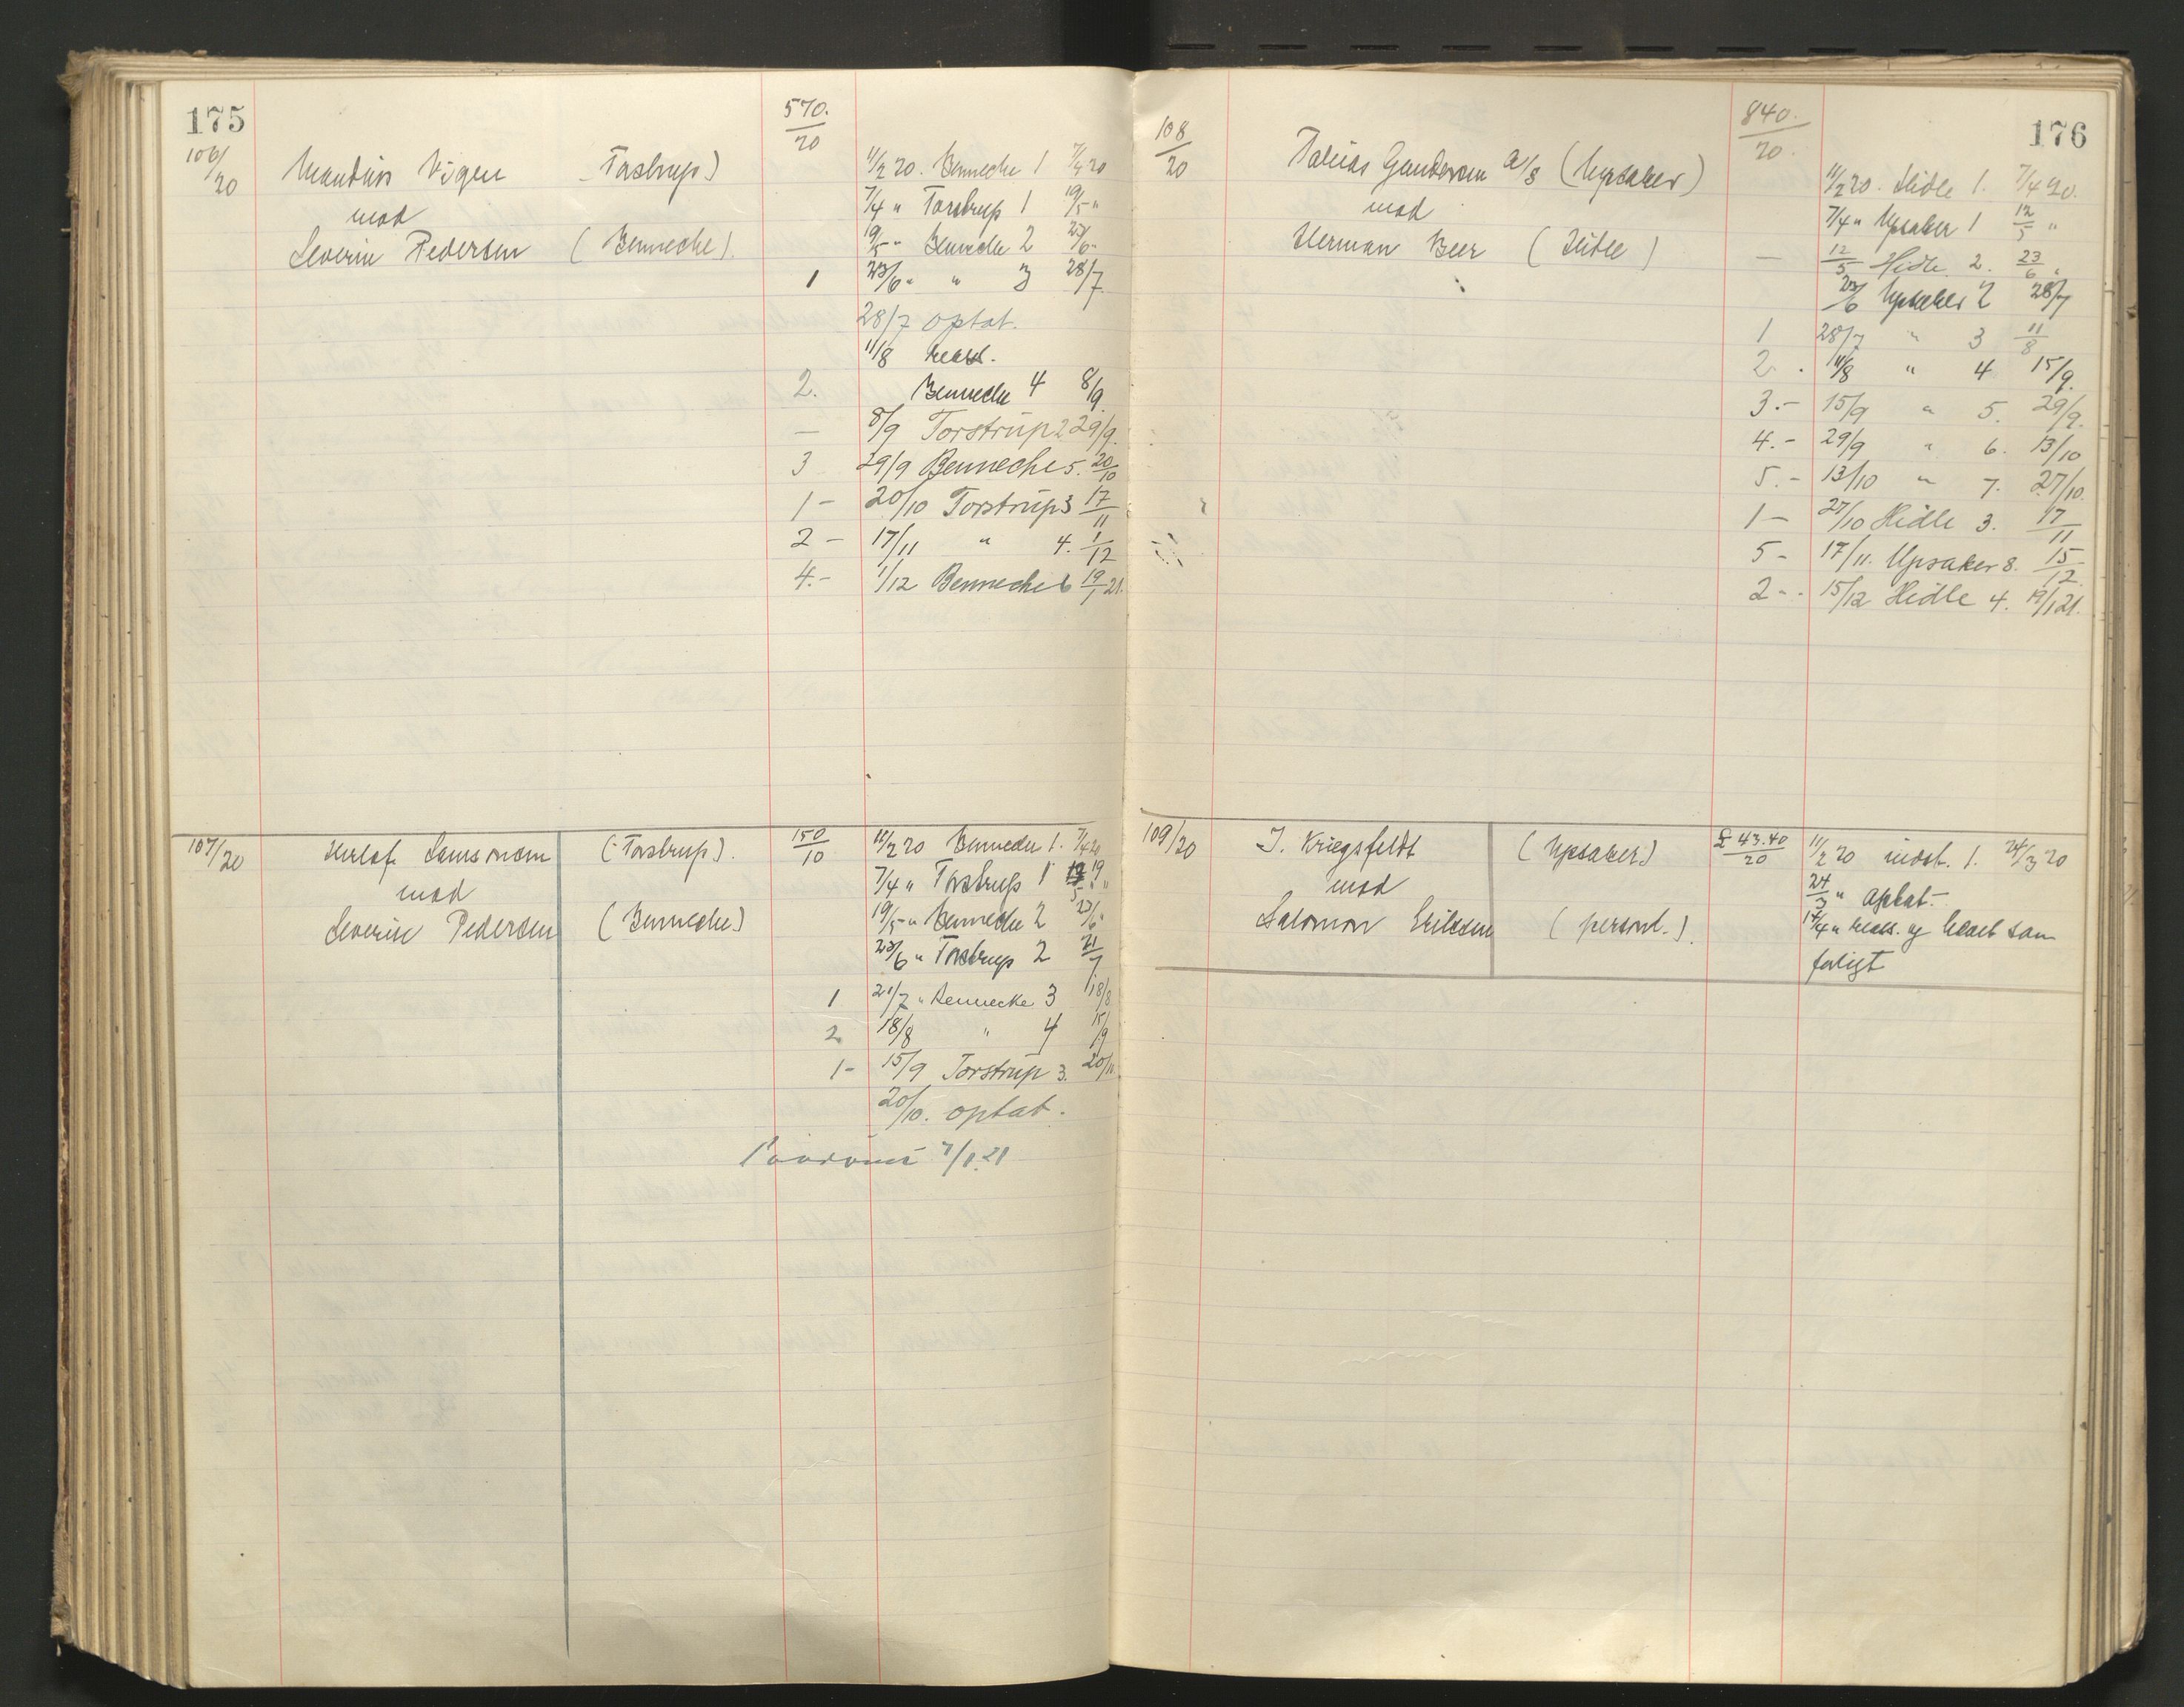 175
106/20
570.
20
Vigen (Torstrup)
mod
Severin Pedersen (Benneche).
11/2 20. Benneche 1 7/4 20
7/4 " Torstrup 1 19/5 "
19/5 " Benneche 2 23/6 "
1 23/6 " " 3 28/7
28/7 optat.
11/8
2. Benneche 4 8/9.
— 8/9 Torstrup 2 29/9.
3 29/9 Benneche 5. 20/10
1 - 20/10 Torstrup 3 17/11
2 - 17/11 " 4. 1/12
4.- 1/12 Benneche 6 19/1 21.
107/20
(Torstrup).
150/10
mod
Severin Pedersen (Benneche)
11/2 20 Benneche 1. 7/4 20
7/4 " Torstrup 1 19/5 "
19/5 " Benneche 2 23/6 "
23/6 " Torstrup 2 21/7
1 21/7 " Bennecke 3 18/8
2 18/8 " 4 15/9
1- 15/9 Torstrup 3. 20/10
20/10. optat.
7/1.21
176
108/20
840.
20.
Tobias Gundersen A/S (Upsaker)
mod
Herman Beer (Hidle)
11/2 20. Hidle 1. 7/4 20.
7/4 " Upsaker 1 12/5 "
— 12/5 Hidle 2. 23/6 "
23/6 Upsaker 2 28/7
1 28/7 " 3 11/8
2. 11/8 " 4 15/9.
3.- 15/9 " 5. 29/9.
4.- 29/9 " 6. 13/10
5.- 13/10 " 7. 27/10.
1 - 27/10 Hidle 3. 17/11
5 - 17/11. Upsaker 8. 15/12.
2 - 15/12 Hidle 4. 19/1 21.
109/20
J. Kriegsfeldt (Upsaker)
£ 43.40
20
mod
Salomon Eriksen (personl.).
11/2 20 indst. 1. 24/3 20
24/3 " optat.
14/4 " og hævet som
forligt